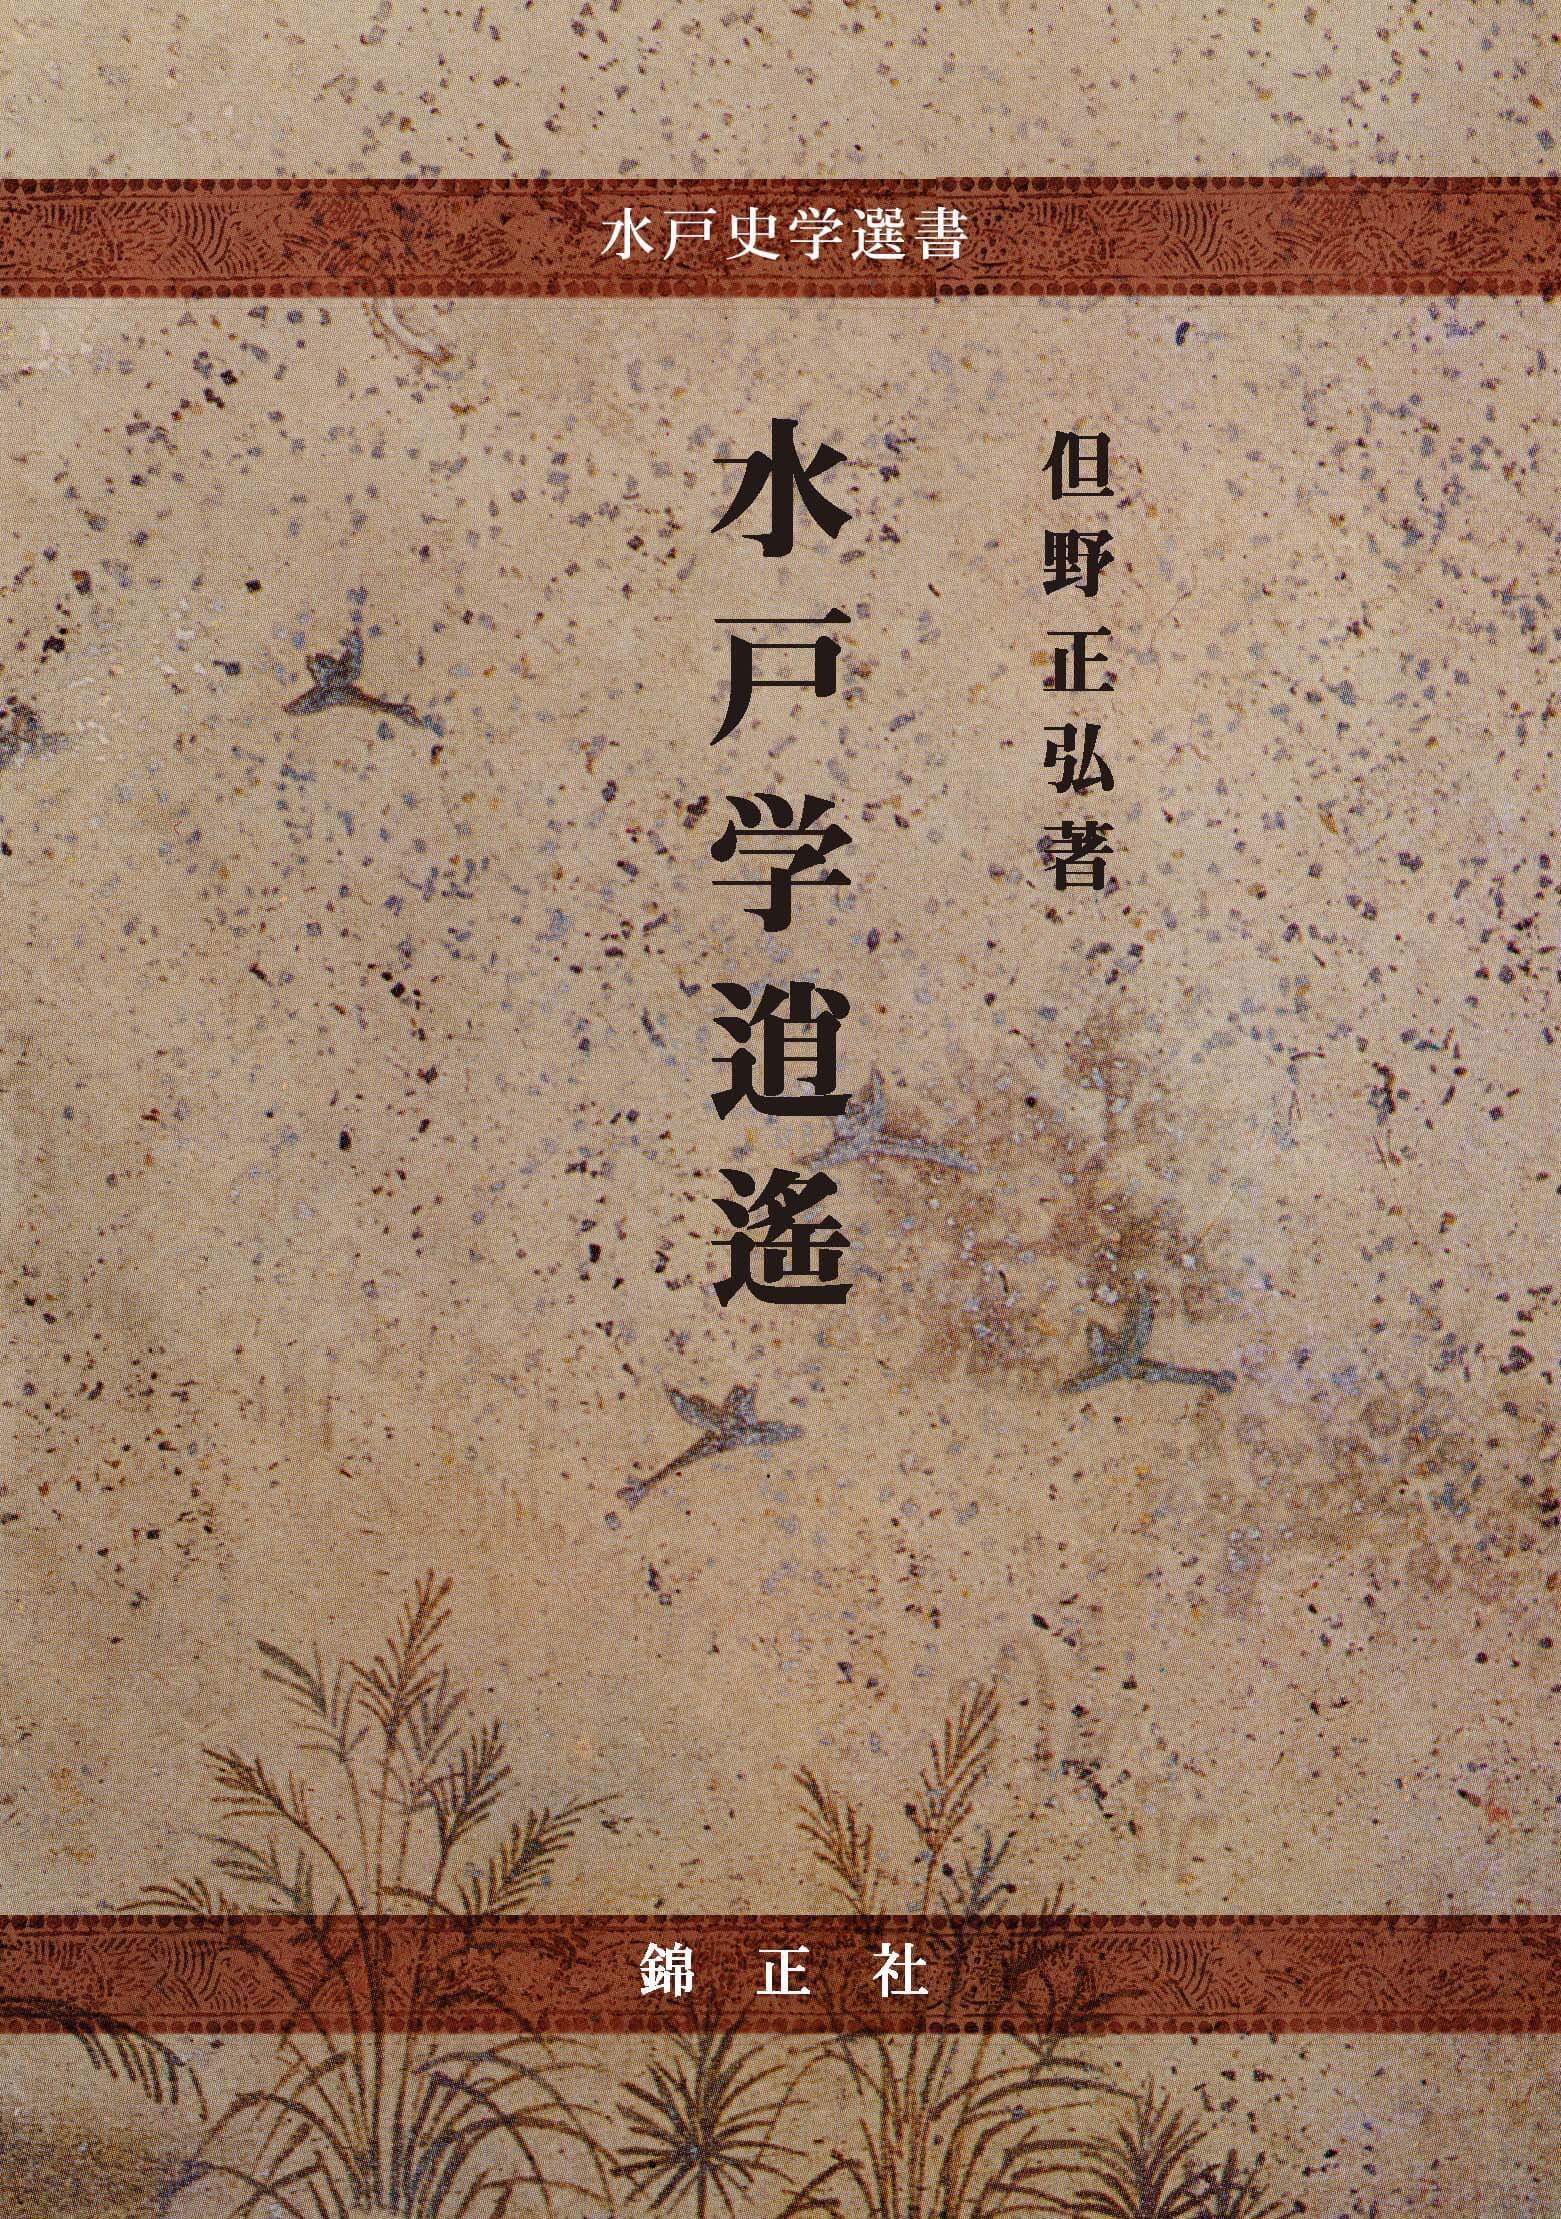 水戸史学選書
但野正弘著
水戸学逍遙
錦正社